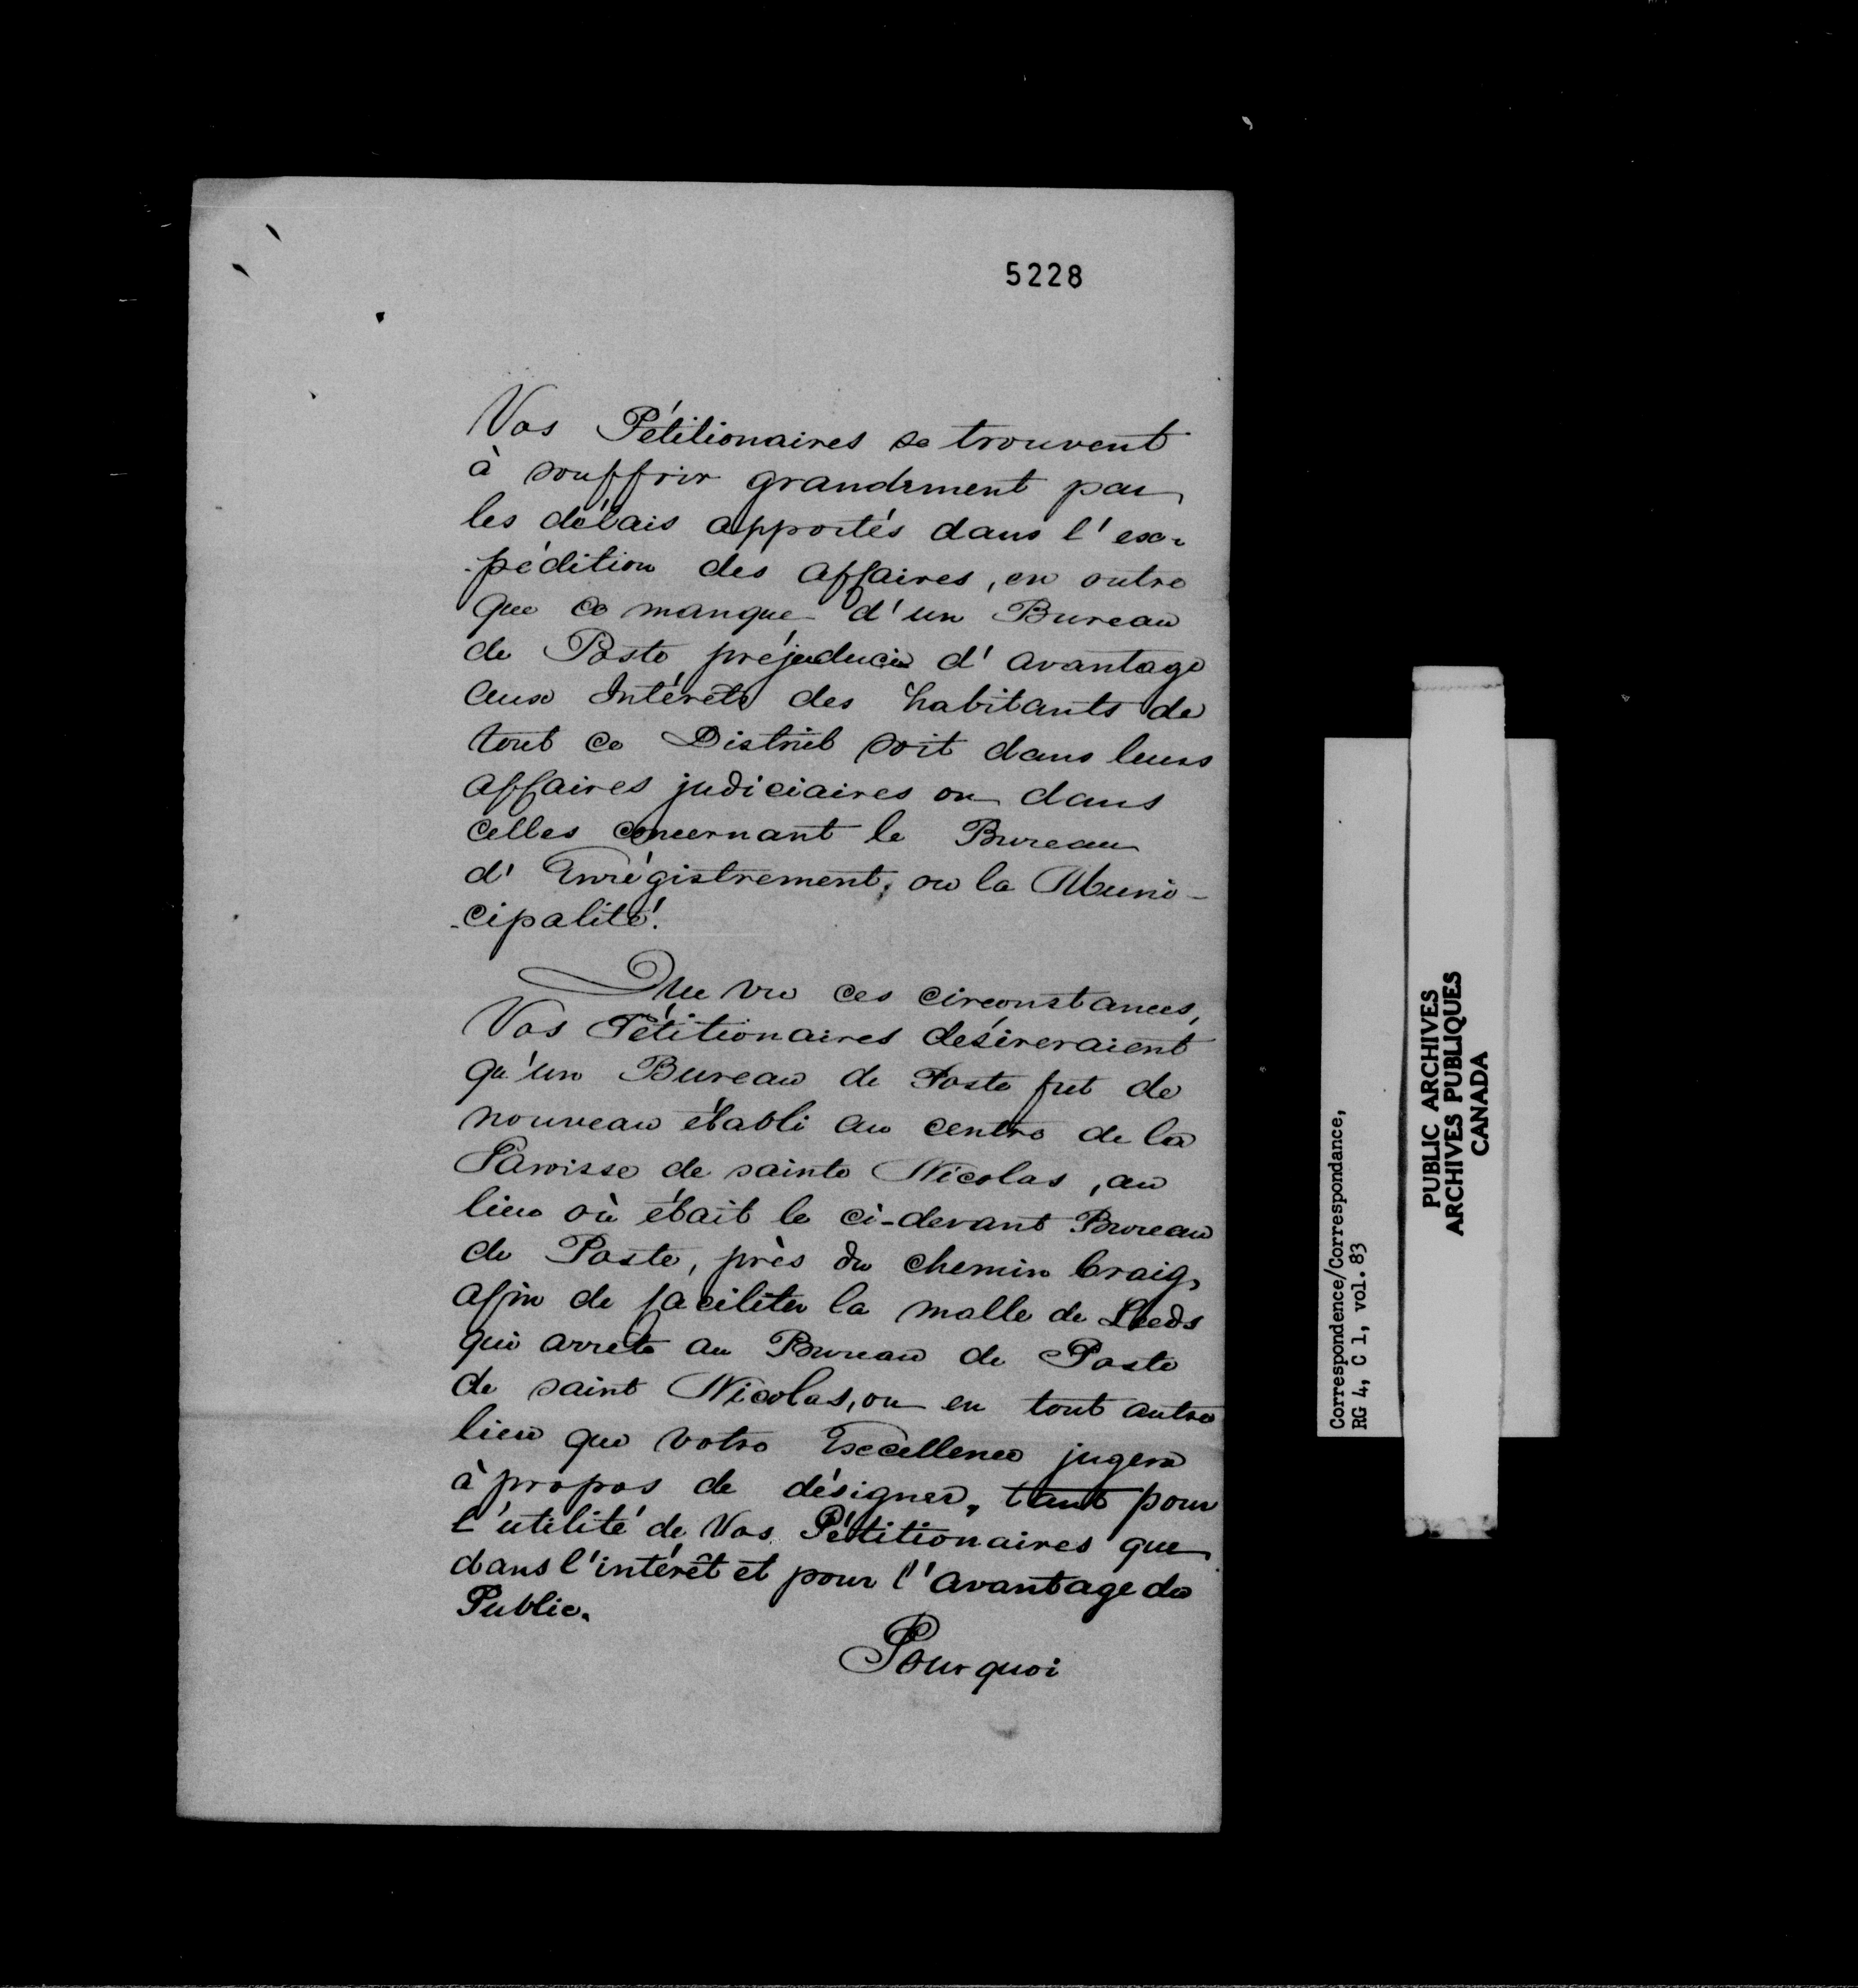 5228
Vos Pétitionaires se trouvent
à souffrir grandement par
les délais apportés dans l'ex-
-pédition des affaires, en outre
que ce manque d'un Bureau
de Poste préjudicie d'avantage
aux Intérêts des habitants de
tout ce District soit dans leurs
affaires judiciaires ou dans
celles concernant le Bureau
d'Enrégistrement, ou la Muni-
-cipalité.
Que vu ces circonstances,
Vos Pétitionaires désireraient
qu'un Bureau de Poste fut de
nouveau établi au centre de la
Paroisse de sainte Nicolas, au
lieu où était le ci-devant Bureau
de Poste, près du chemin Craig,
afin de faciliter la malle de Leeds
qui arrête au Bureau de Poste
de saint Nicolas, ou en tout autre
lieu que votre Excellence jugera
à propos de désigner, tant pour
l'utilité de Vos Pétitionaires que
dans l'intérêt et pour l'avantage du
Public.
Pourquoi
Correspondence/Correspondance,
RG 4, C 1, vol. 83
PUBLIC ARCHIVES
ARCHIVES PUBLIQUES
CANADA